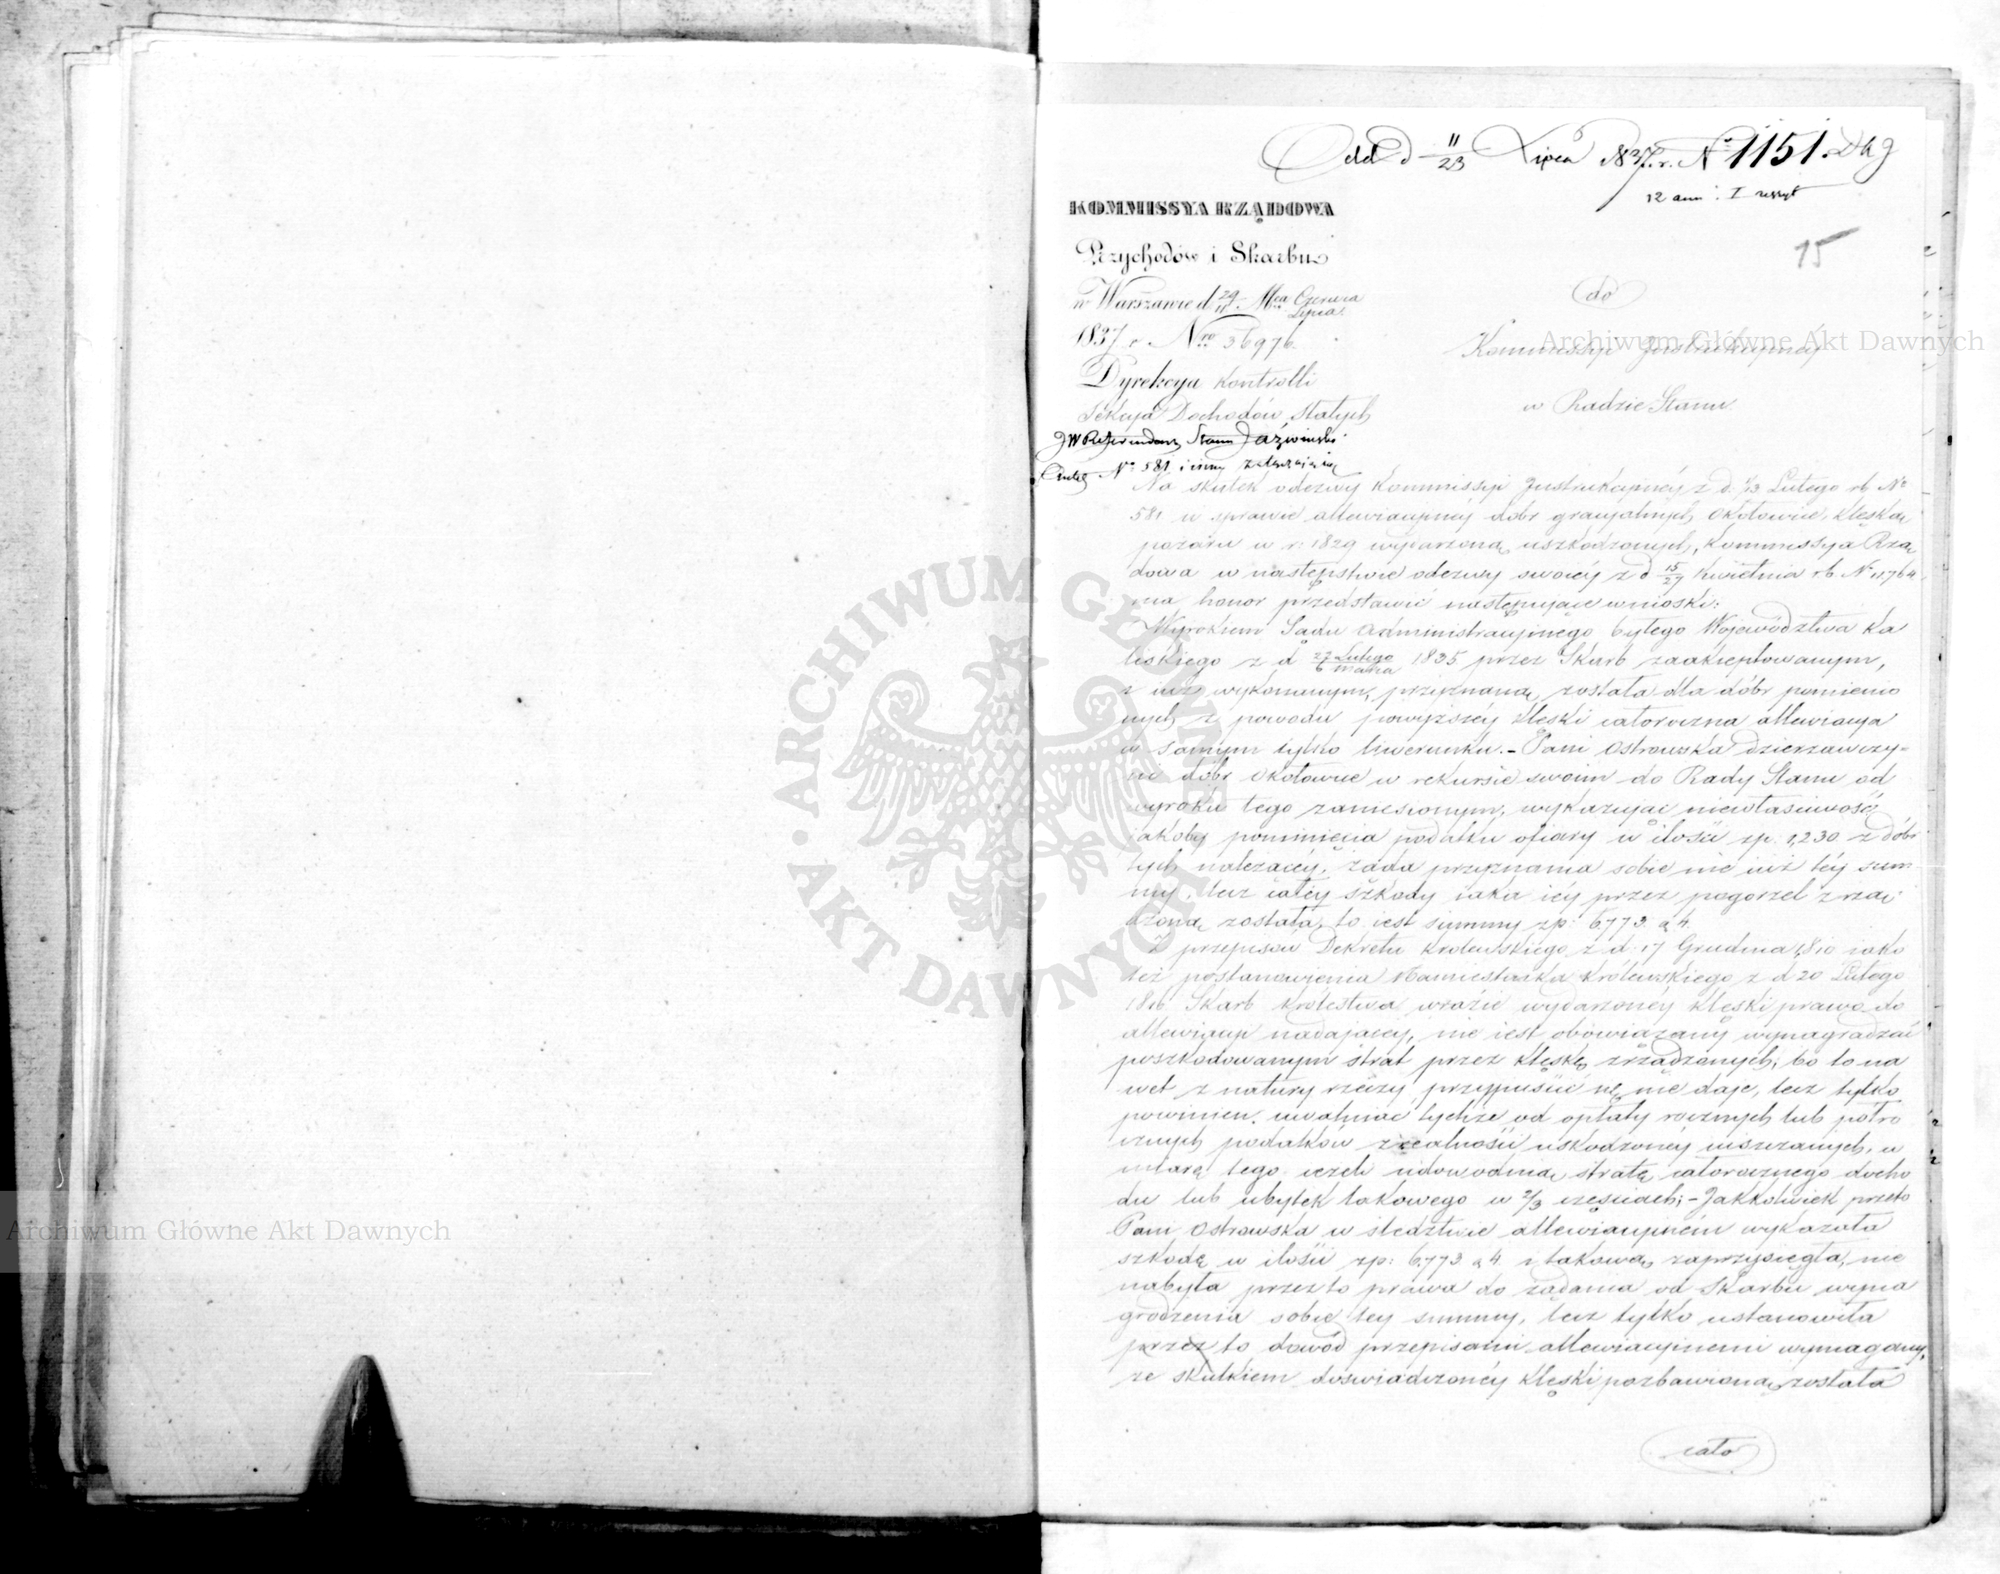 Odd d 11/23 Lipca 1837 r. No 1151.
12 ann: I zeszyt
15
KOMMISSYA RZĄDOWA
Przychodów i Skarbu
w Warszawie d 29/11 Mca Czerwca/Lipca
1837 r. Nro 36976.
Dyrekcya Kontrolli
Sekcja Dochodów Stałych
do
Kommissyi Instrukcyjnéy
w Radzie Stanu.
JW Referendarz Stanu Jaźwiński
No 581 i inny załączający
Na skutek odezwy Kommissyi Instrukcyjnéy z d. 1/13 Lutego rb No
581 w sprawie allewiacyinéy dóbr gracyalnych Okołowice, klęską
pożaru w r: 1829 wydarzoną uszkodzonych, Kommissya Rzą
dowa w następstwie odezwy swoiéy z d 15/27 Kwietnia rb No 11,764
ma honor przedstawić następujące wnioski:
Wyrokiem Sądu Administracyinego byłego Województwa Ka
liskiego z d 22 Lutego/6 Marca 1835 przez Skarb zaakceptowanym,
i już wykonanym, przyznaną została dla dóbr pomienio
nych z powodu powyższéy klęski całoroczna allewiacya
w samym tylko liwerunku. – Pani Ostrowska dzierzawczy-
ni dóbr Okołowice w rekursie swoim do Rady Stanu od
wyroku tego zaniesionym, wykazując niewłaściwość
jakoby pominięcia podatku ofiary w ilości zp. 1,230 z dóbr
tych należącéy, żąda przyznania sobie nie już téy sum-
my, lecz całéy szkody iaka iéy przez pogorzel zrzą-
dzoną została, to iest summy zp: 6773 g 4.
Z przepisów Dekretu Królewskiego z d: 17 Grudnia 1810 iako
też postanowienia Namiestnika Królewskiego z d 20 Lutego
1816 Skarb Królestwa w razie wydarzoney klęski prawo do
allewiacyi nadającey, nie iest obowiązany wynagradzać
poszkodowanym strat przez klęskę zrządzonych; bo to na
wet z natury rzeczy przypuścić się nie daje, lecz tylko
powinien uwalniać tychże od opłaty rocznych lub półro
cznych podatków z realności uskodzonéy uiszczanych, w
miarę tego ieżeli udowodnią stratę całorocznego docho
du lub ubytek takowego w 2/3 częściach; – Jakkolwiek przeto
Pani Ostrowska w śledztwie allewiacyiném wykazała
szkodę w ilości zp: 6,773 g 4. i takową zaprzysięgła, nie
nabyła przez to prawa do żądania od Skarbu wyna
grodzenia sobie téy summy, lecz tylko ustanowiła
przez to dowód przepisami allewiacyinemi wymagany,
że skutkiem doświadczonéy klęski pozbawioną została
cało
Archiwum Główne Akt Dawnych
Archiwum Główne Akt Dawnych
ARCHIWUM GŁÓWNE
AKT DAWNYCH